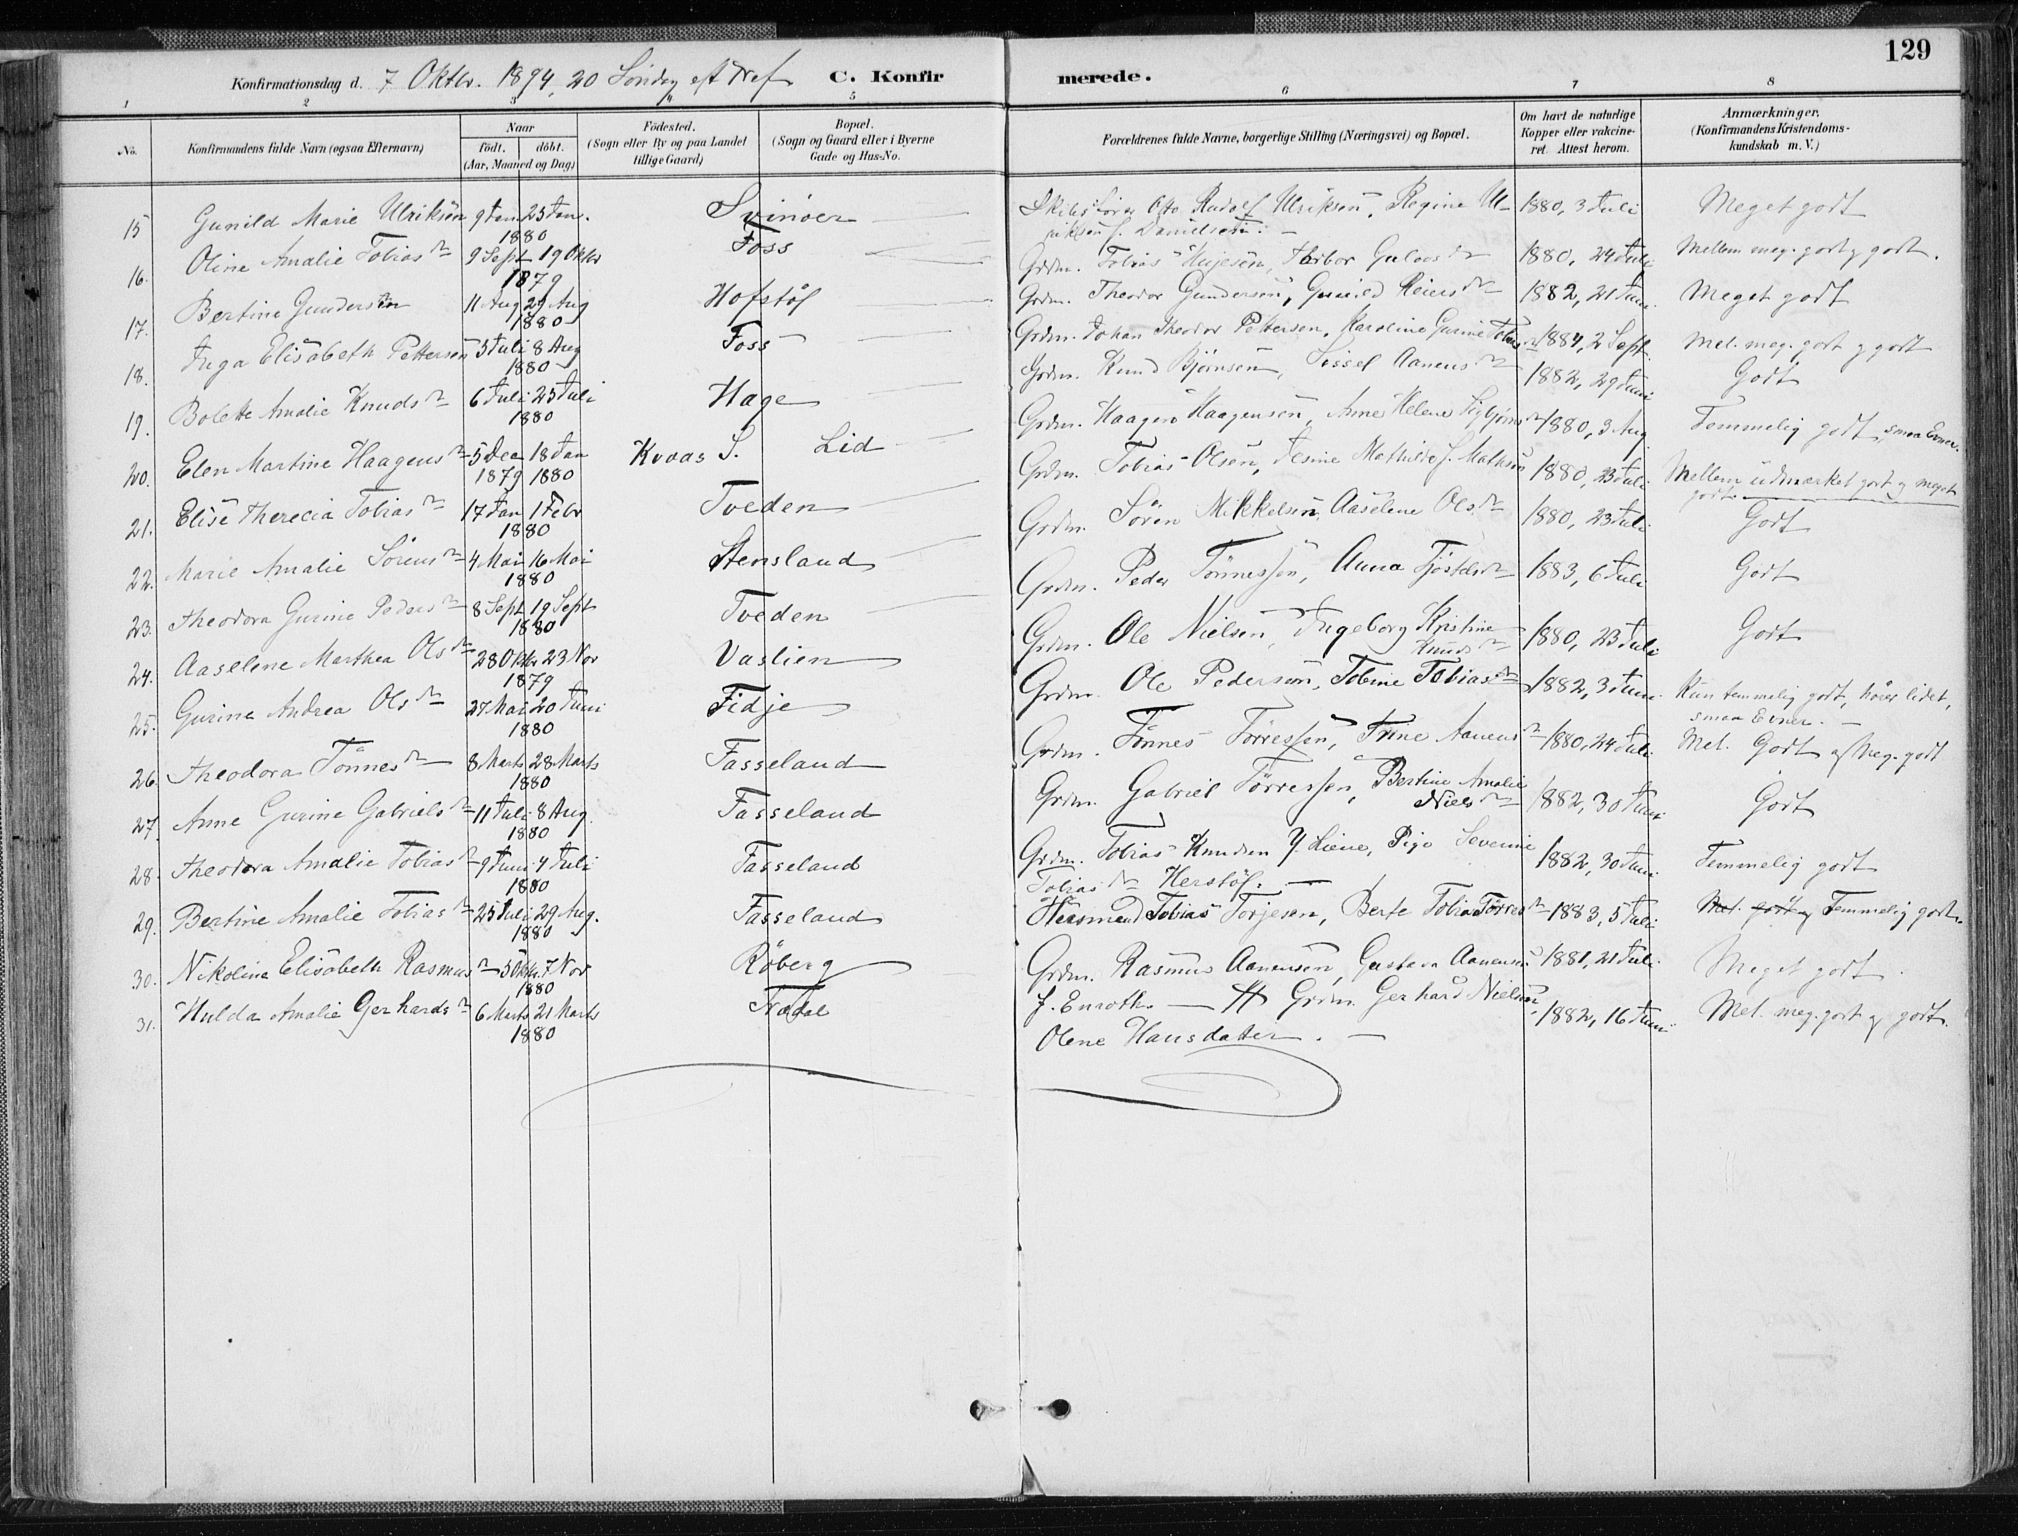 129
Konfirmationsdag d. 7 Oktbr. 1894, 20 Søndag eft Tref C. Konfir merede.
1 2 3 5 6 7 8
No.
Konfirmandens fulde Navn (ogsaa Efternavn)
Naar
født. døbt.
(Aar, Maaned og Dag)
Fødested.
(Sogn eller By og paa Landet
tillige Gaard)
Bopæl.
(Sogn og Gaard eller i Byerne
Gade og Hus-No.
Forældrenes fulde Navne, borgerlige Stilling (Næringsvei) og Bopæl.
Om havt de naturlige
Kopper eller vakcine-
ret. Attest herom.
Anmærkninger,
(Konfirmandens Kristendoms-
kundskab m. V.)
15 Gunild Marie Ulriksen 9 Jan 25 Jan. 1880 Svinøer Skibsfører Otto Rudolf Ulriksen, Regine Ul-
riksen f. Danielsen. 1880, 3 Juli Meget godt
16. Oline Amalie Tobiasdr 9 Sept 19 Oktbr 1879 Foss Grdm. Tobias 1880, 24 Juli Mellem meg. godt g godt.
17. Bertine Gundersen 11 Aug 29 Aug 1880 Hofstøl Grdm. Theodor Gundersen, Gunild Reiersdr 1882, 21 Juni. Meget godt
18. Inga Elisabeth Pettersen 5 Juli 8 Aug 1880 Foss Grdm. Johan Theodor Pettersen, Karoline Gurine Tobias 1884, 2 Sept. Mel. meg. godt g godt
19. Bolette Amalie Knudsdr 6 Juli 25 Juli 1880 Hage Grdm. Knud Bjørnsen, Sissel Aanensdr 1882, 29 Juni Godt
20. Elen Martine Haagensdr 5 Dec 18 Jan 1879 1880 Kvaas S. Lid Grdm. Haagen Haagensen, Anne Helene 1880, 3 Aug Temmelig godt, smaa Evner.
21. Elise Therecia Tobiasdr 17 Jan 1 Febr 1880 Tveden Grdm. Tobias Olsen, Jesine Mathilde f. Mathisen 1880, 23 Juli Mellem udmærket godt g meget
godt.
22. Marie Amalie Sørensdr 4 Mai 16 Mai 1880 Stensland Grdm. Søren Mikkelsen, Aaselene Olsdr 1880, 23 Juli Godt
23. Theodora Gurine Pedersdr 8 Sept 19 Sept 1880 Tveden Grdm. Peder Tønnessen, Anna Fjøstdr 1883, 6 Juli Godt
24. Aaselene Marthea Olsdr 28 Oktbr 23 Nov 1879 Vaslien Grdm. Ole Nielsen, Ingeborg Kristine
Knudsdr 1880, 23 Juli Godt
25. Gurine Andrea Olsdr 27 Mai 20 Juni 1880 Fidje Grdm. Ole Pedersen, Tobine Tobiasdr 1882, 3 Juni. Kun temmelig godt, hører lidet,
smaa Evner.
26. Theodora Tønnesdr 8 Marts 28 Marts 1880 Fasseland Grdm. Tønnes Tørressen, Trine Aanensdr 1880, 24 Juli Mel. Godt og Meg. godt
27. Anne Gurine Gabrielsdr 11 Juli 8 Aug. 1880 Fasseland Grdm. Gabriel Tørressen, Bertine Amalie
Nielsdr 1882, 30 Juni Godt
28. Theodora Amalie Tobiasdr 9 Juni 4 Juli 1880 Fasseland Grdm. Tobias Knudsen Y. Liene, Pige Severine
Tobiasdr Herstøl. 1882, 30 Juni Temmelig godt
29. Bertine Amalie Tobiasdr 25 Juli 29 Aug. 1880 Fasseland Huusmand Tobias Torjesen, Berte Tobia Tørresdr 1883, 5 Juli Mel. godt og Temmelig godt.
30. Nikoline Elisabeth Rasmusdr 5 Oktbr. 7 Nov 1880 Røberg Grdm. Rasmus Aanensen, Gustava Aanensen
f. Enroth. 1881, 21 Juli Meget godt.
31. Hulda Amalie Gerhardsdr 6 Marts 21 Marts 1880 Trædal Grdm. Gerhard Nielsen,
Olene Hansdatter. 1882, 16 Juni Mel. meg. godt g godt.